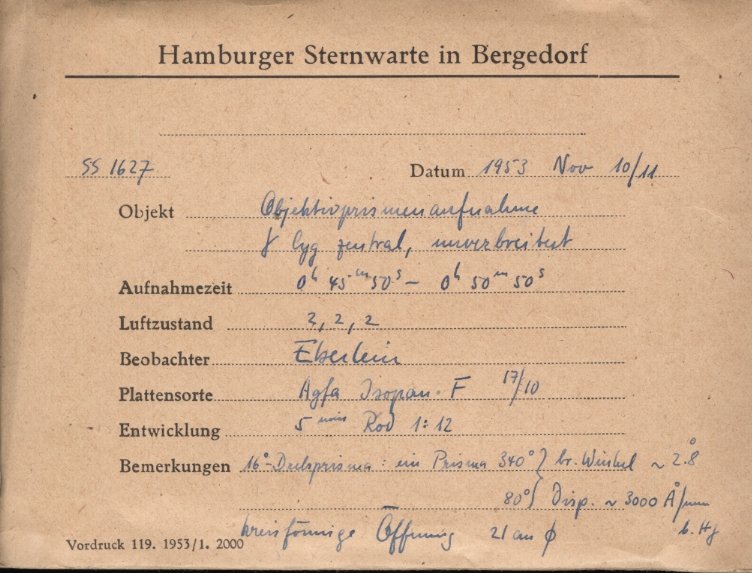 Hamburger Sternwarte in Bergedorf
SS 1627 Datum 1953 Nov 10/11
Objekt Objektivprismenaufnahme
γ Cyg zentral, unverbreitert
Aufnahmezeit 0ʰ 45ᵐ 50ˢ – 0ʰ 50ᵐ 50ˢ
Luftzustand 3, 2, 2
Beobachter Eberlein
Plattensorte Agfa Isopan F 17/10
Entwicklung 5 min Rod 1:12
Bemerkungen 16°- : ein Prisma 340° } br. Winkel ~ 2.8
80° } Disp. ~ 3000 Å/mm
b. Hγ
kreisförmige Öffnung 21 cm ϕ
Vordruck 119. 1953/1. 2000